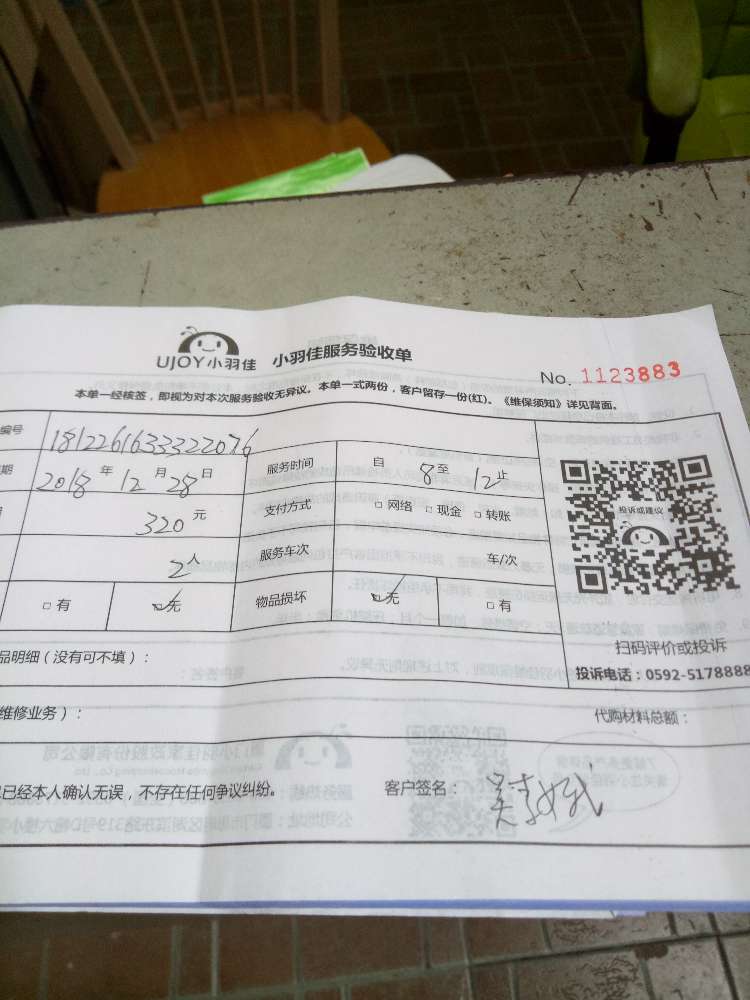 UJOY小羽佳 小羽佳服务验收单
No. 1123883
本单一经核签，即视为对本次服务验收无异议。本单一式两份，客户留存一份(红)。《维保须知》详见背面。
编号 1812261633322076
期 2018 年 12 月 28 日 服务时间 自 8 至 12止
320 元 支付方式 □ 网络 □ 现金 □ 转账
2人 服务车次 车/次
□ 有 □无 物品损坏 □无 □ 有
投诉或建议
扫码评价或投诉
品明细（没有可不填）：
投诉电话：0592-5178888
维修业务）： 代购材料总额：
已经本人确认无误，不存在任何争议纠纷。 客户签名：